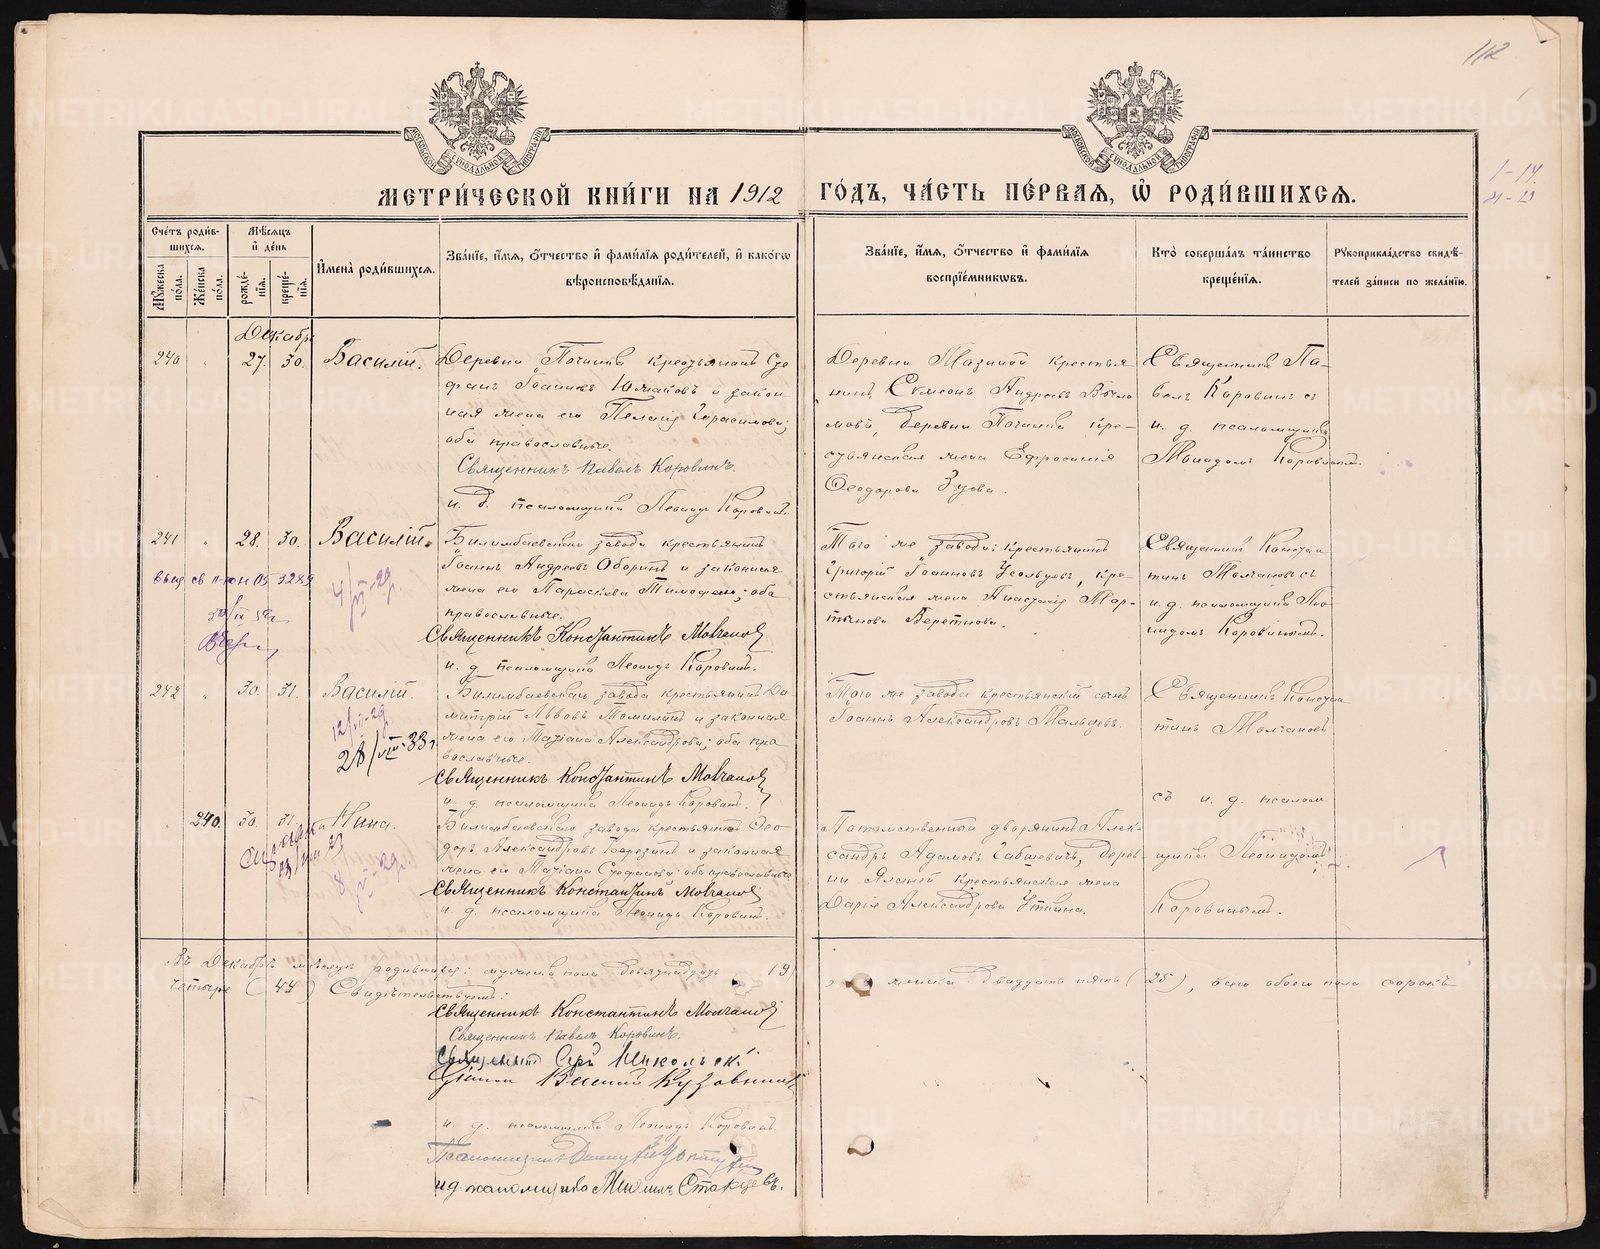 112
МЕТРИ́ЧЕСКОЙ КНИ́ГИ НА 1912 ГО́ДЪ, ЧА́СТЬ ПЕ́РВАЯ, Ѡ РОДИ́ВШИХСЯ.
Сче́тъ роди́вшихся.
Му́жеска по́ла.
Же́нска по́ла.
Мѣ́сяцъ и де́нь
рожде́нія.
креще́нія.
Имена̀ роди́вшихся.
Зва́ніе, и́мя, о́тчество и фами́лія роди́телей, и како́гѡ
вѣроисповѣ́данія.
Зва́ніе, и́мя, о́тчество и фами́лія
воспріе́мниковъ.
Кто̀ соверша́лъ та́инство
креще́нія.
Рукоприкла́дство свидѣ́-
телей за́писи по жела́нію.
Декабрь
240 27. 30. Василій.
Деревни Починка крестьянинъ Сте
фанъ Іоанновъ Юмановъ и закон
ная жена его Пелагія Герасимова;
оба православные.
Священникъ Павелъ Коровинъ.
и. д. псаломщика Леонидъ Коровинъ.
Деревни Мазиной крестья
нинъ Симеонъ Андреевъ
деревни Починка кре-
стьянская жена Евфросинія
Ѳеодорова Зуева.
Священникъ Па-
велъ Коровинъ съ
и. д. псаломщика
Леонидомъ Коровинымъ.
241 28. 30. Василій.
Билимбаевскаго завода крестьянинъ
Іоаннъ Андреевъ Оборинъ и законная
жена его Параскева Тимофеева; оба
православные.
Священникъ Константинъ Молчановъ
и. д. псаломщика Леонидъ Коровинъ.
Того же завода: крестьянинъ
Григорій Іоанновъ Усольцевъ, кре-
стьянская жена Анастасія Мар-
тынова Веретнова.
Священникъ Констан
тинъ Молчановъ съ
и. д. псаломщика Лео
нидомъ Коровинымъ.
242 30. 31. Василій.
28/VIII-33 г.
Билимбаевскаго завода крестьянинъ Ди
митрій Львовъ Томилинъ и законная
жена его Татіана Александрова; оба пра
вославные.
Священникъ Константинъ Молчановъ
и. д. псаломщика Леонидъ Коровинъ.
Того же завода крестьянскій сынъ
Іоаннъ Александровъ Мальцевъ.
Священникъ Констан
тинъ Молчановъ
съ и. д. псалом
щика Леонидомъ
Коровинымъ.
240. 30. 31. Нина.
Билимбаевскаго завода крестьянинъ Ѳео
доръ Александровъ Березинъ и законная
жена его Татіана Стефанова; оба православные
Священникъ Константинъ Молчановъ
и. д. псаломщика Леонидъ Коровинъ.
Потомственный дворянинъ Алек-
сандръ Адамовъ Габшевичъ, дерев
ни крестьянская жена
Дарія Александрова Уткина.
Въ Декабрѣ мѣсяцѣ родившихся: мужеска пола девятнадцать 19, женска двадцать пять (25), всего обоего пола сорокъ
четыре (44) Свидѣтельствуемъ:
Священникъ Константинъ Молчановъ
Священникъ Павелъ Коровинъ.
Священникъ Никольскій
Діаконъ Василій Кузовников
и. д. псаломщика Леонидъ Коровинъ.
и. д. псаломщика Михаилъ Старцевъ.